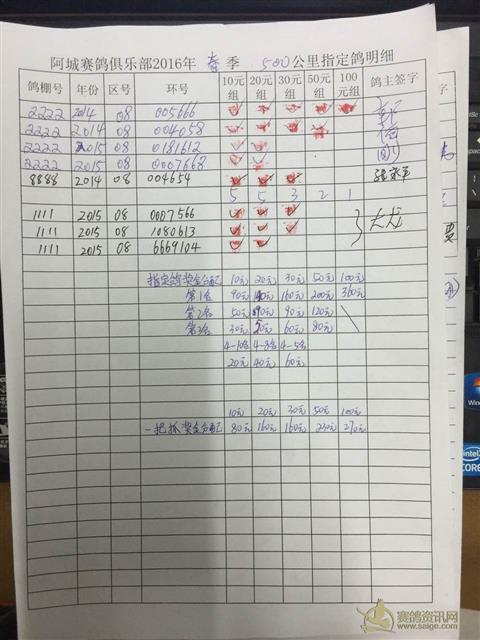 阿城赛鸽俱乐部2016年 春 季 500公里指定鸽明细
鸽棚号 年份 区号 环号 10元组 20元组 30元组 50元组 100元组 鸽主签字
2222 2014 08 005666
2222 2014 08 004058
2222 2015 08 0181612
2222 2015 08 0007668
8888 2014 08 004654
5 5 3 2 1
1111 2015 08 0007566
1111 2015 08 1080613 大龙
1111 2015 08 6669104
指定鸽奖金分配 10元 20元 30元 50元 100元
第1名 90元 140元 160元 200元 360元
第2名 50元 90元 90元 120元
第3名 30元 50元 60元 80元
4-10名 4-8名 4-5名
20元 40元 60元
10元 20元 30元 50元 100元
一把抓奖金分配 80元 160元 160元 230元 270元
字
赛鸽资讯网
www.saige.com